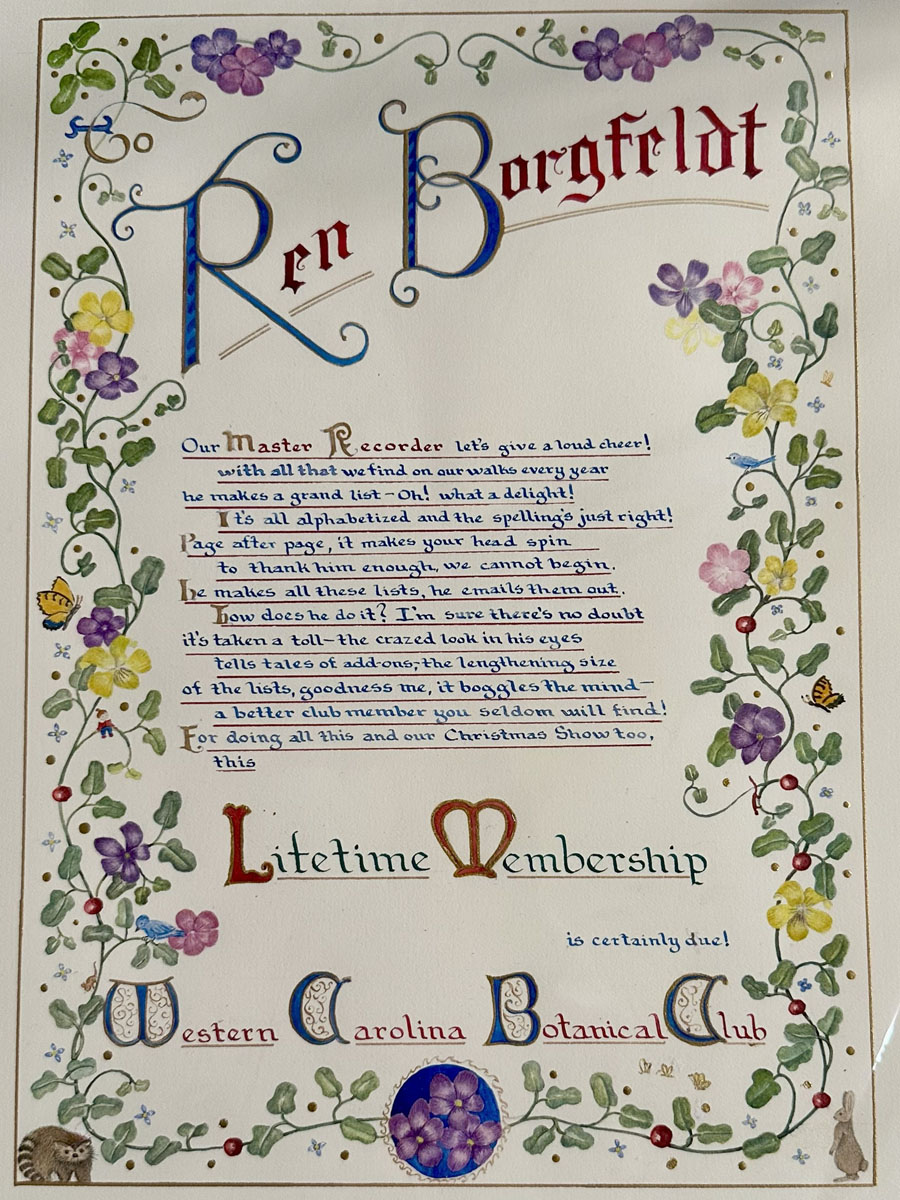 To
Ken Borgfeldt
Our Master Recorder let's give a loud cheer!
with all that we find on our walks every year
he makes a grand list – Oh! what a delight!
It's all alphabetized and the spelling's just right!
Page after page, it makes your head spin
to thank him enough, we cannot begin.
He makes all these lists, he emails them out.
How does he do it? I'm sure there's no doubt
it's taken a toll – the crazed look in his eyes
tells tales of add-ons; the lengthening size
of the lists, goodness me, it boggles the mind –
a better club member you seldom will find!
For doing all this and our Christmas Show too,
this
Lifetime Membership
is certainly due!
Western Carolina Botanical Club